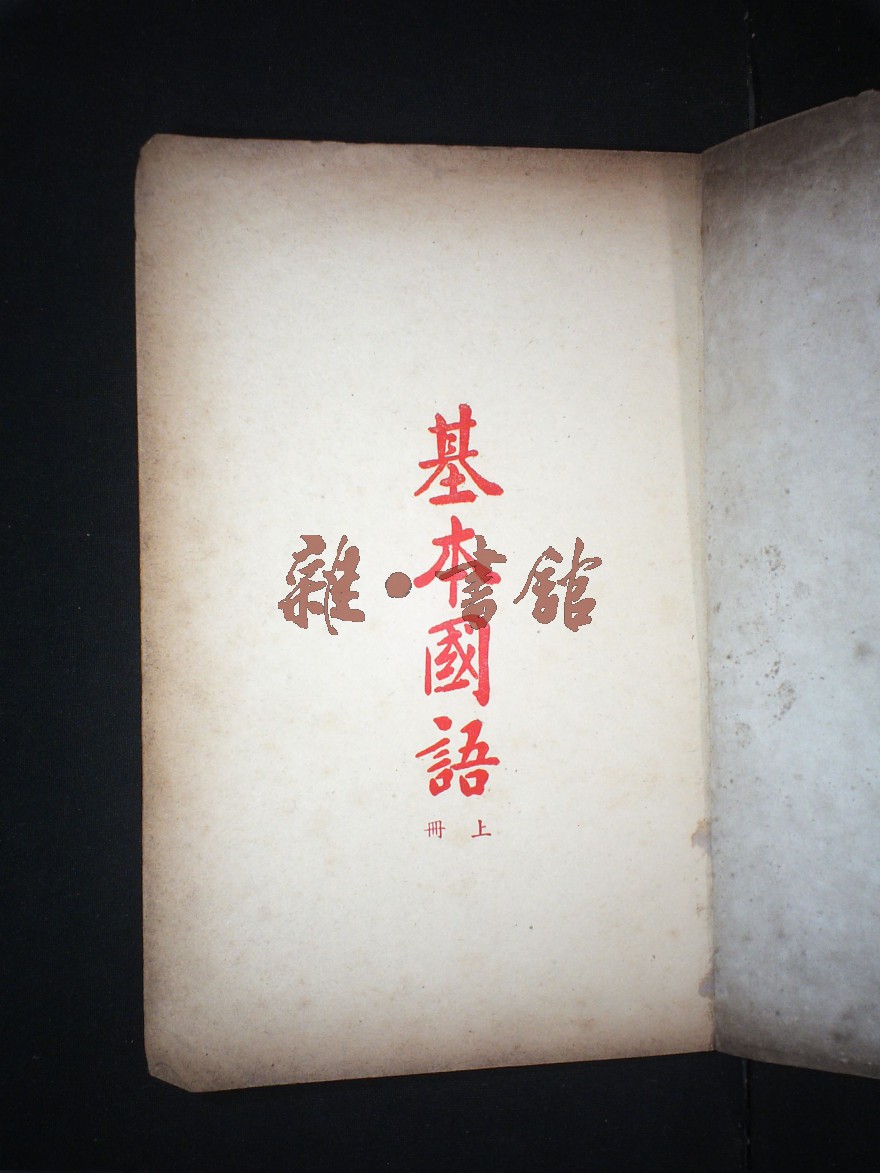 基本國語
上冊
雜·書館